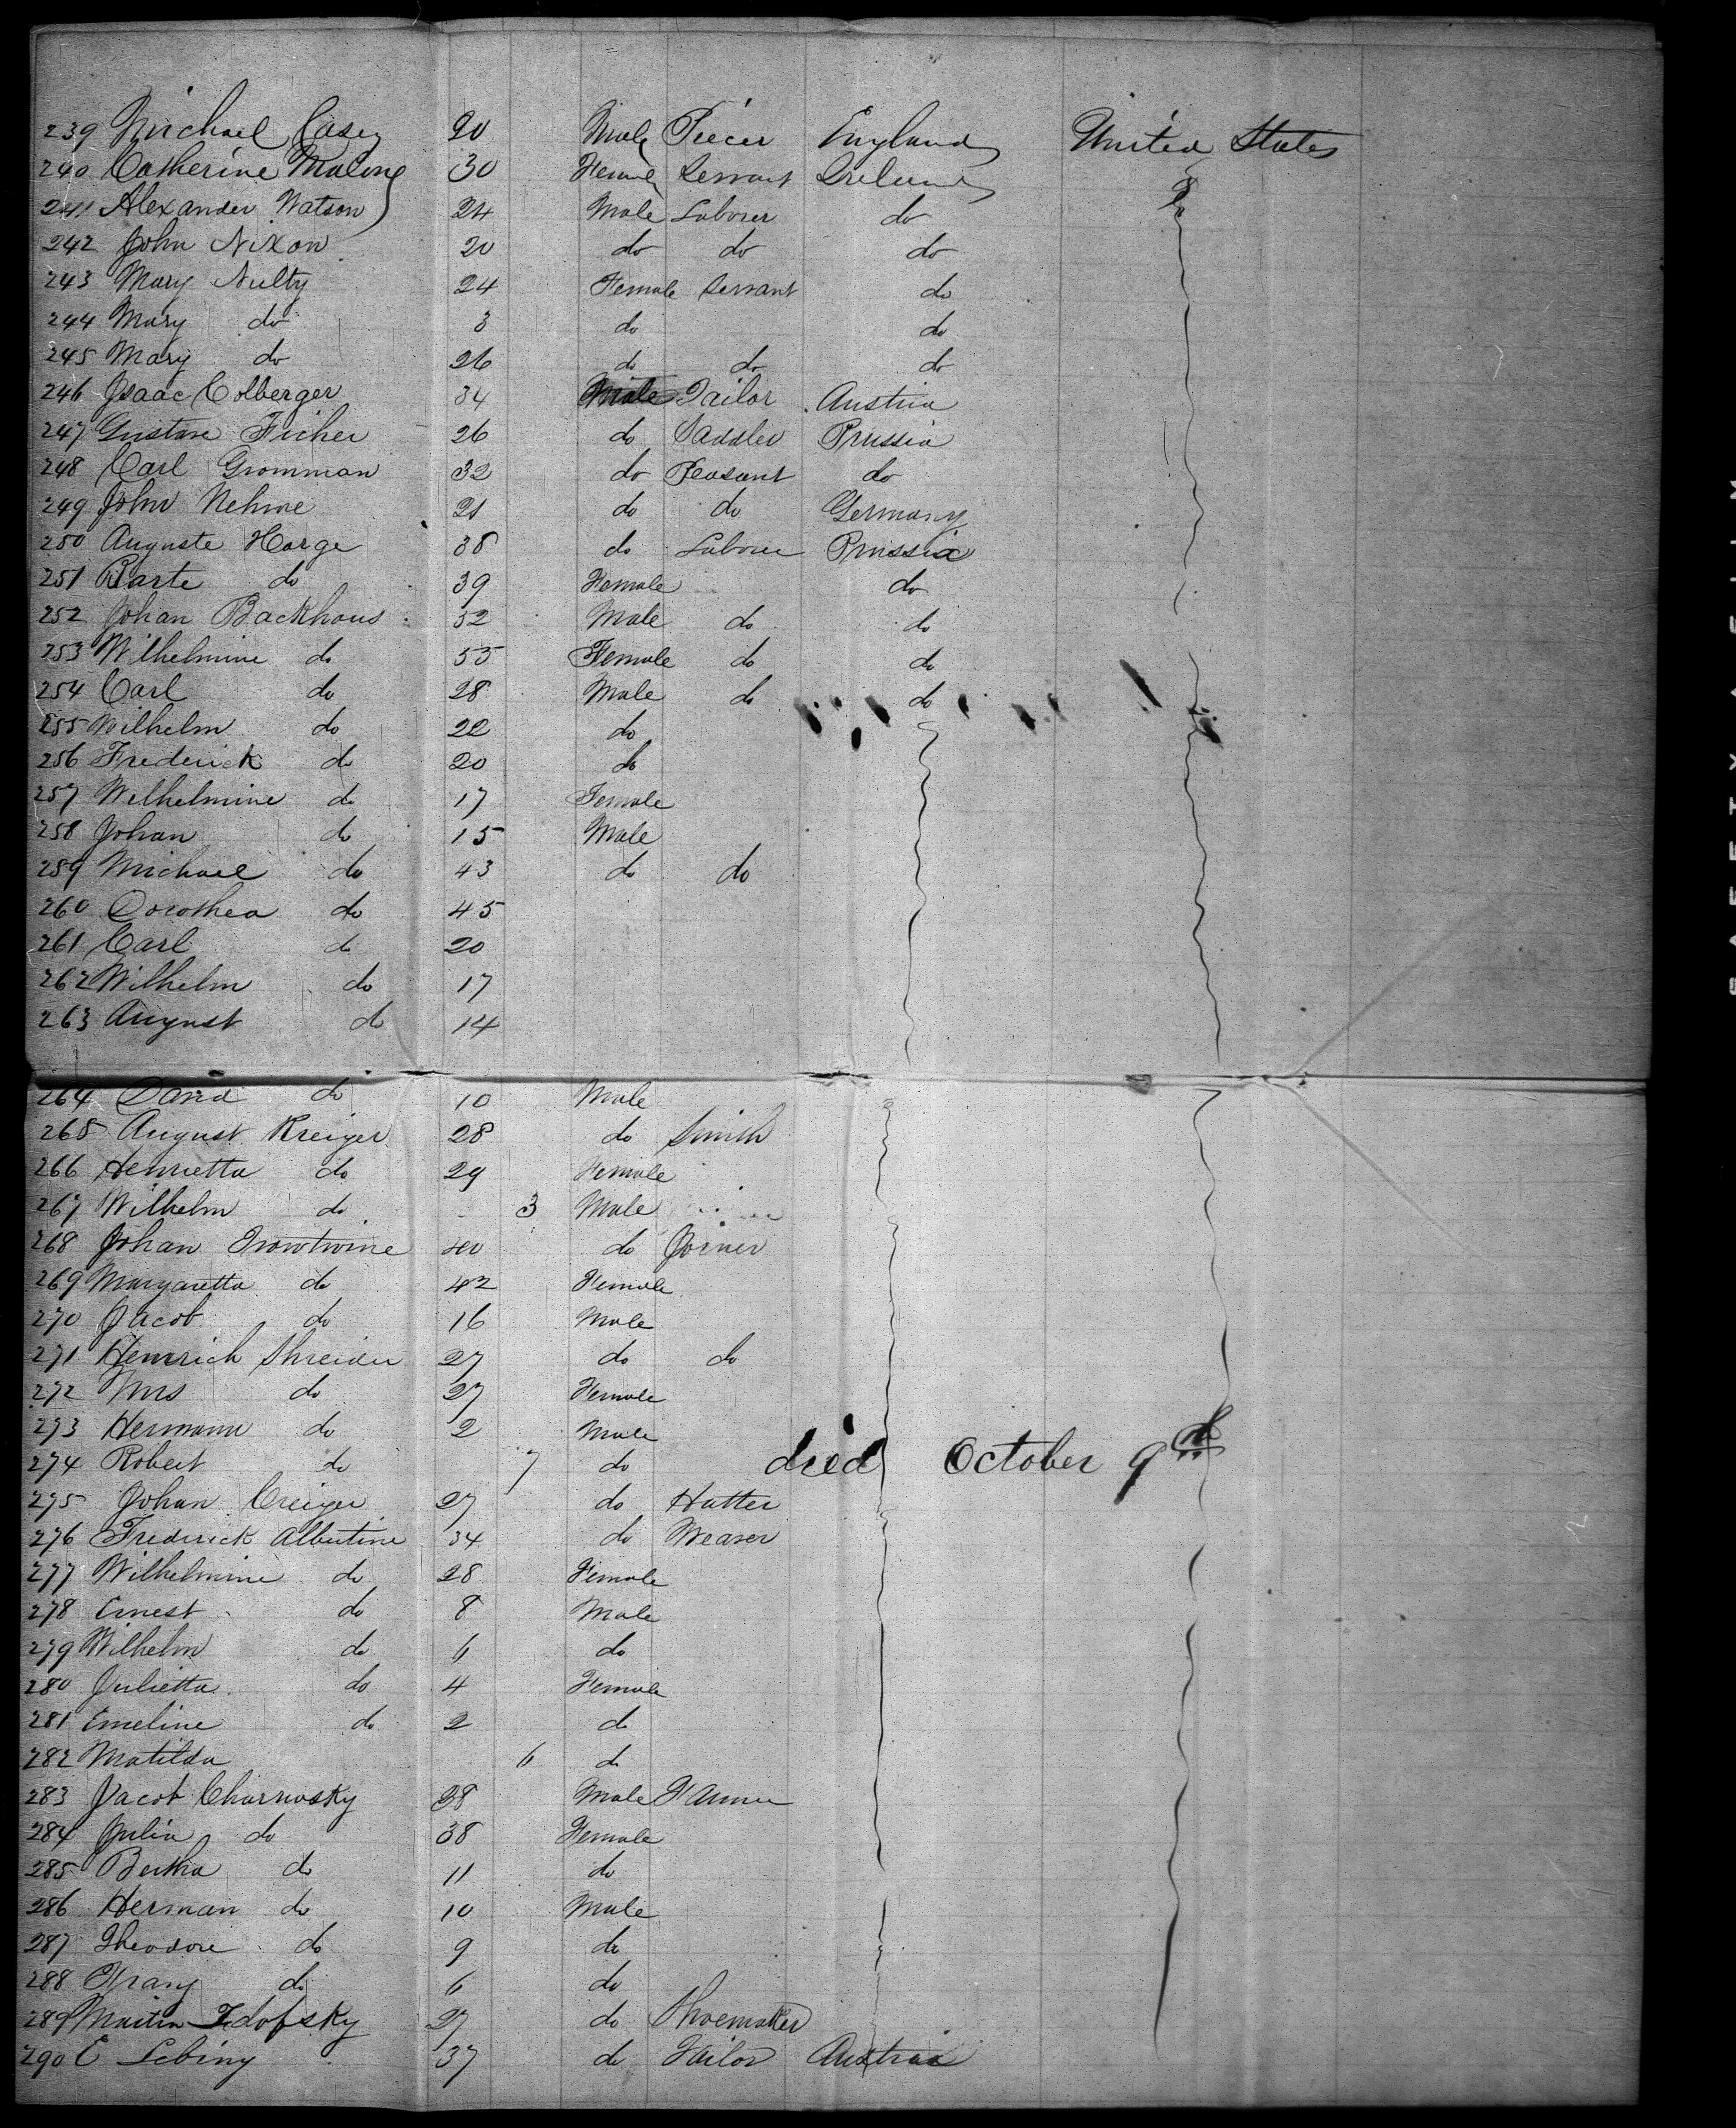 239 Michael Casey 20 Male Piecer England United States
240 Catherine Malone 30 Female Servant Ireland
241 Alexander Watson 24 Male Laborer do
242 John Nixon 20 do do do
243 Mary Nulty 24 Female Servant do
244 Mary do 3 do do
245 Mary do 26 do do do
246 Isaac Colberger 34 Male Tailor Austria
247 Gustave Ficher 26 do Saddler Prussia
248 Carl Gromman 32 do Peasant do
249 John Nehme 21 do do Germany
250 Auguste Harge 38 do Laborer Prussia
251 do 39 Female do
252 Johan Backhous 52 Male do do
253 Wilhelmine do 55 Female do do
254 Carl do 28 Male do do
255 Wilhelm do 22 do
256 Frederick do 20 do
257 Welhelmine do 17 Female
258 Johan do 15 Male
259 Michael do 43 do do
260 Dorothea do 45
261 Carl do 20
262 Wilhelm do 17
263 August do 14
264 David do 10 Male
265 August Kreiger 28 do Smith
266 Henrietta do 29 Female
267 Wilhelm do 3 Male
268 Johan 40 do Joiner
269 Margaretta do 42 Female
270 Jacob do 16 Male
271 Heinrich Shreider 27 do do
272 Mrs do 27 Female
273 Hermann do 2 Male
274 Robert do 7 do died October 9th
275 Johan Creiger 27 do Hatter
276 Frederick Albertine 34 do Weaver
277 Wilhelmine do 28 Female
278 Ernest do 8 Male
279 Wilhelm do 6 do
280 Julietta do 4 Female
281 Emeline do 2 do
282 Matilda 6 do
283 Jacob Charnosky 38 Male Farmer
284 Julia do 38 Female
285 Bertha do 11 do
286 Herman do 10 Male
287 Theodore do 9 do
288 do 6 do
289 Martin 27 do Shoemaker
290 E Lebiny 37 do Tailor Austria